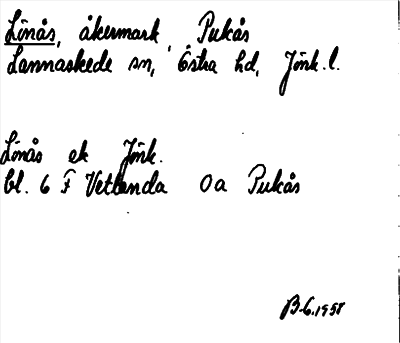 Linås, åkermark, Pukås
Lannaskede sn, Östra hd, Jönk. l.
Linås ek Jönk.
bl. 6 F Vetlanda Oa Pukås
B.G. 1958